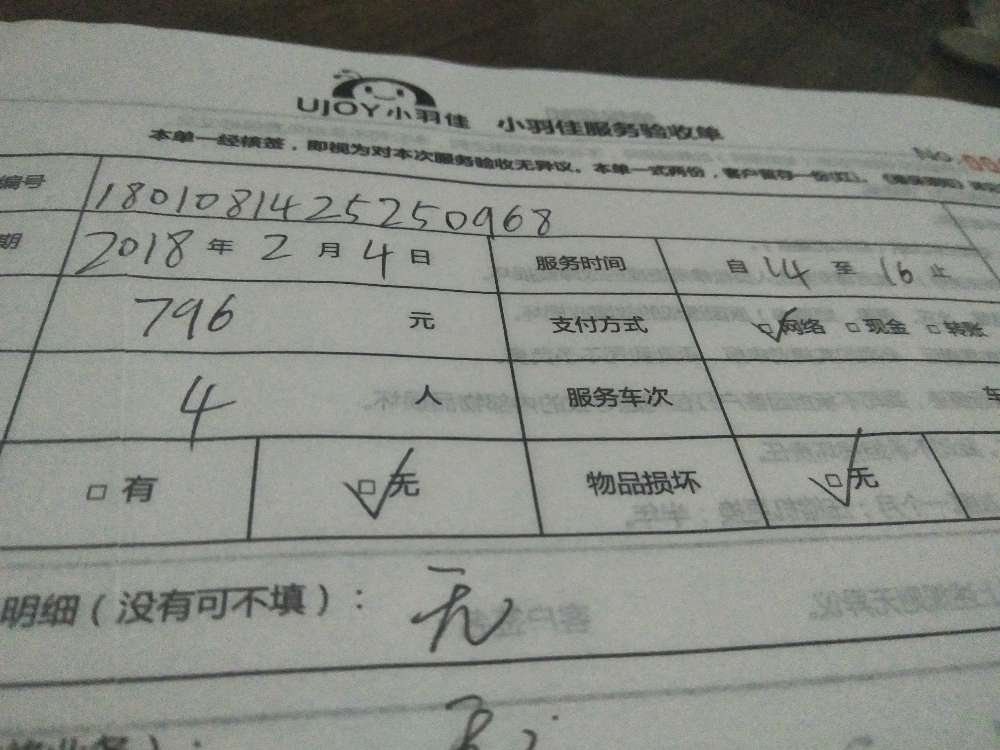 UJOY小羽佳 小羽佳服务验收单
本单一经核签，即视为对本次服务验收无异议。本单一式两份，客户留存一份(红)。
NO.
编号 18010814252509 68
期 2018 年 2 月 4 日 服务时间 自 14 至 16 止
796 元 支付方式 ☑网络 □现金 □转账
4 人 服务车次 车
□ 有 ☑无 物品损坏 ☑无
明细（没有可不填）： 无